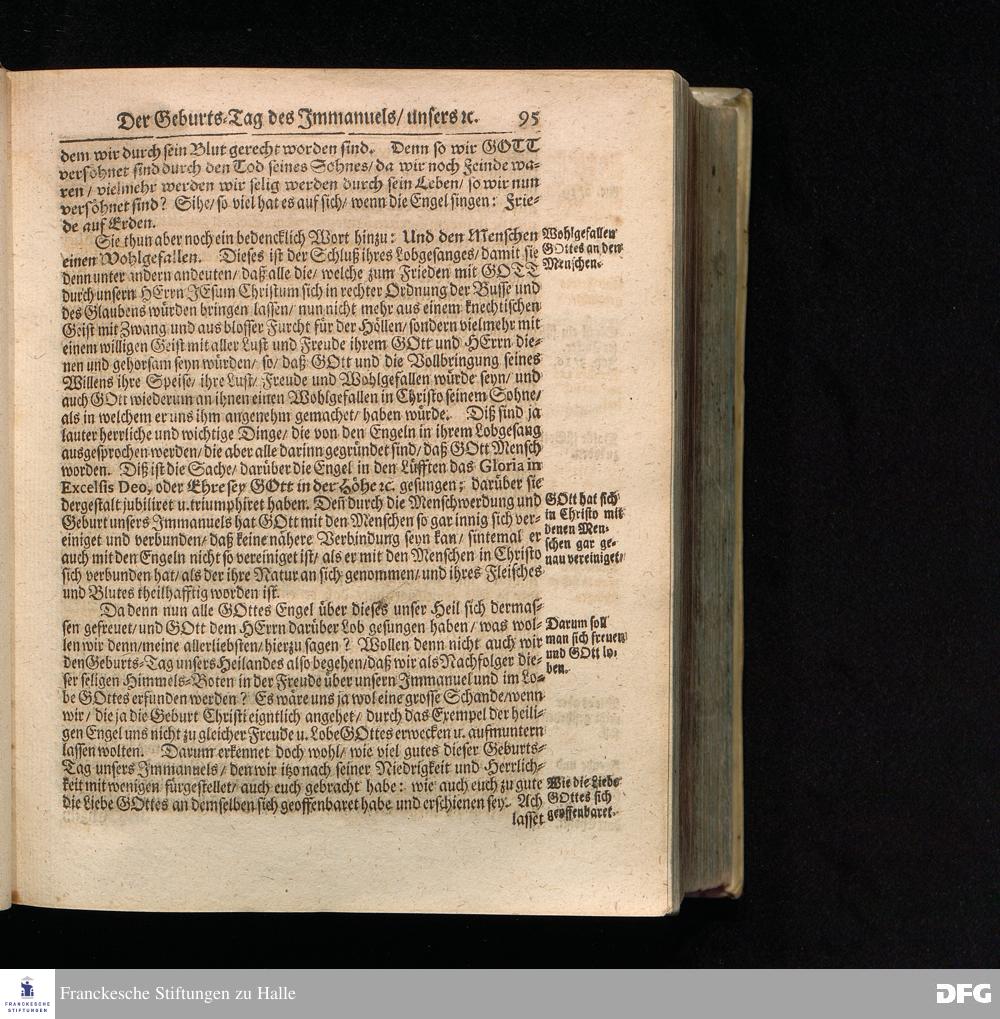 Der Geburts-Tag des Immanuels/ unsers ꝛc. 95
dem wir durch sein Blut gerecht worden sind. Denn so wir GOTT
versöhnet sind durch den Tod seines Sohnes/ da wir noch Feinde wa-
ren/ vielmehr werden wir selig werden durch sein Leben/ so wir nun
versöhnet sind? Sihe/ so viel hat es auf sich/ wenn die Engel singen: Frie-
de auf Erden.
Sie thun aber noch ein bedencklich Wort hinzu: Und den Menschen
einen Wohlgefallen. Dieses ist der Schluß ihres Lobgesanges/ damit sie
denn unter andern andeuten/ daß alle die/ welche zum Frieden mit GOTT
durch unsern HErrn JEsum Christum sich in rechter Ordnung der Busse und
des Glaubens würden bringen lassen/ nun nicht mehr aus einem knechtischen
Geist mit Zwang und aus blosser Furcht für der Höllen/ sondern vielmehr mit
einem willigen Geist mit aller Lust und Freude ihrem GOtt und HErrn die-
nen und gehorsam seyn würden/ so/ daß GOtt und die Vollbringung seines
Willens ihre Speise/ ihre Lust/ Freude und Wohlgefallen würde seyn/ und
auch GOtt wiederum an ihnen einen Wohlgefallen in Christo seinem Sohne/
als in welchem er uns ihm angenehm gemachet/ haben würde. Diß sind ja
lauter herrliche und wichtige Dinge/ die von den Engeln in ihrem Lobgesang
ausgesprochen werden/ die aber alle darinn gegründet sind/ daß GOtt Mensch
worden. Diß ist die Sache/ darüber die Engel in den Lüfften das Gloria in
Excelsis Deo, oder Ehre sey GOtt in der Höhe ꝛc. gesungen; darüber sie
dergestalt jubiliret u. triumphiret haben. Deñ durch die Menschwerdung und
Geburt unsers Immanuels hat GOtt mit den Menschen so gar innig sich ver-
einiget und verbunden/ daß keine nähere Verbindung seyn kan/ sintemal er
auch mit den Engeln nicht so vereiniget ist/ als er mit den Menschen in Christo
sich verbunden hat/ als der ihre Natur an sich genommen/ und ihres Fleisches
und Blutes theilhafftig worden ist.
Da denn nun alle GOttes Engel über dieses unser Heil sich dermas-
sen gefreuet/ und GOtt dem HErrn darüber Lob gesungen haben/ was wol-
len wir denn/ meine allerliebsten/ hierzu sagen? Wollen denn nicht auch wir
den Geburts-Tag unsers Heilandes also begehen/ daß wir als Nachfolger die-
ser seligen Himmels-Boten in der Freude über unsern Immanuel und im Lo-
be GOttes erfunden werden? Es wäre uns ja wol eine grosse Schande/ wenn
wir/ die ja die Geburt Christi eigntlich angehet/ durch das Exempel der heili-
gen Engel uns nicht zu gleicher Freude u. Lobe GOttes erwecken u. aufmuntern
lassen wolten. Darum erkennet doch wohl/ wie viel gutes dieser Geburts-
Tag unsers Immanuels/ den wir itzo nach seiner Niedrigkeit und Herrlich-
keit mit wenigen fürgestellet/ auch euch gebracht habe: wie auch euch zu gute
die Liebe GOttes an demselben sich geoffenbaret habe und erschienen sey. Ach
lasset
Wohlgefallen
GOttes an den
Menschen.
GOtt hat sich
in Christo mit
denen Men-
schen gar ge-
nau vereiniget/
Darum soll
man sich freuen
und GOtt lo-
ben.
Wie die Liebe
GOttes sich
geoffenbaret.
FRANCKESCHE
STIFTUNGEN
Franckesche Stiftungen zu Halle
DFG